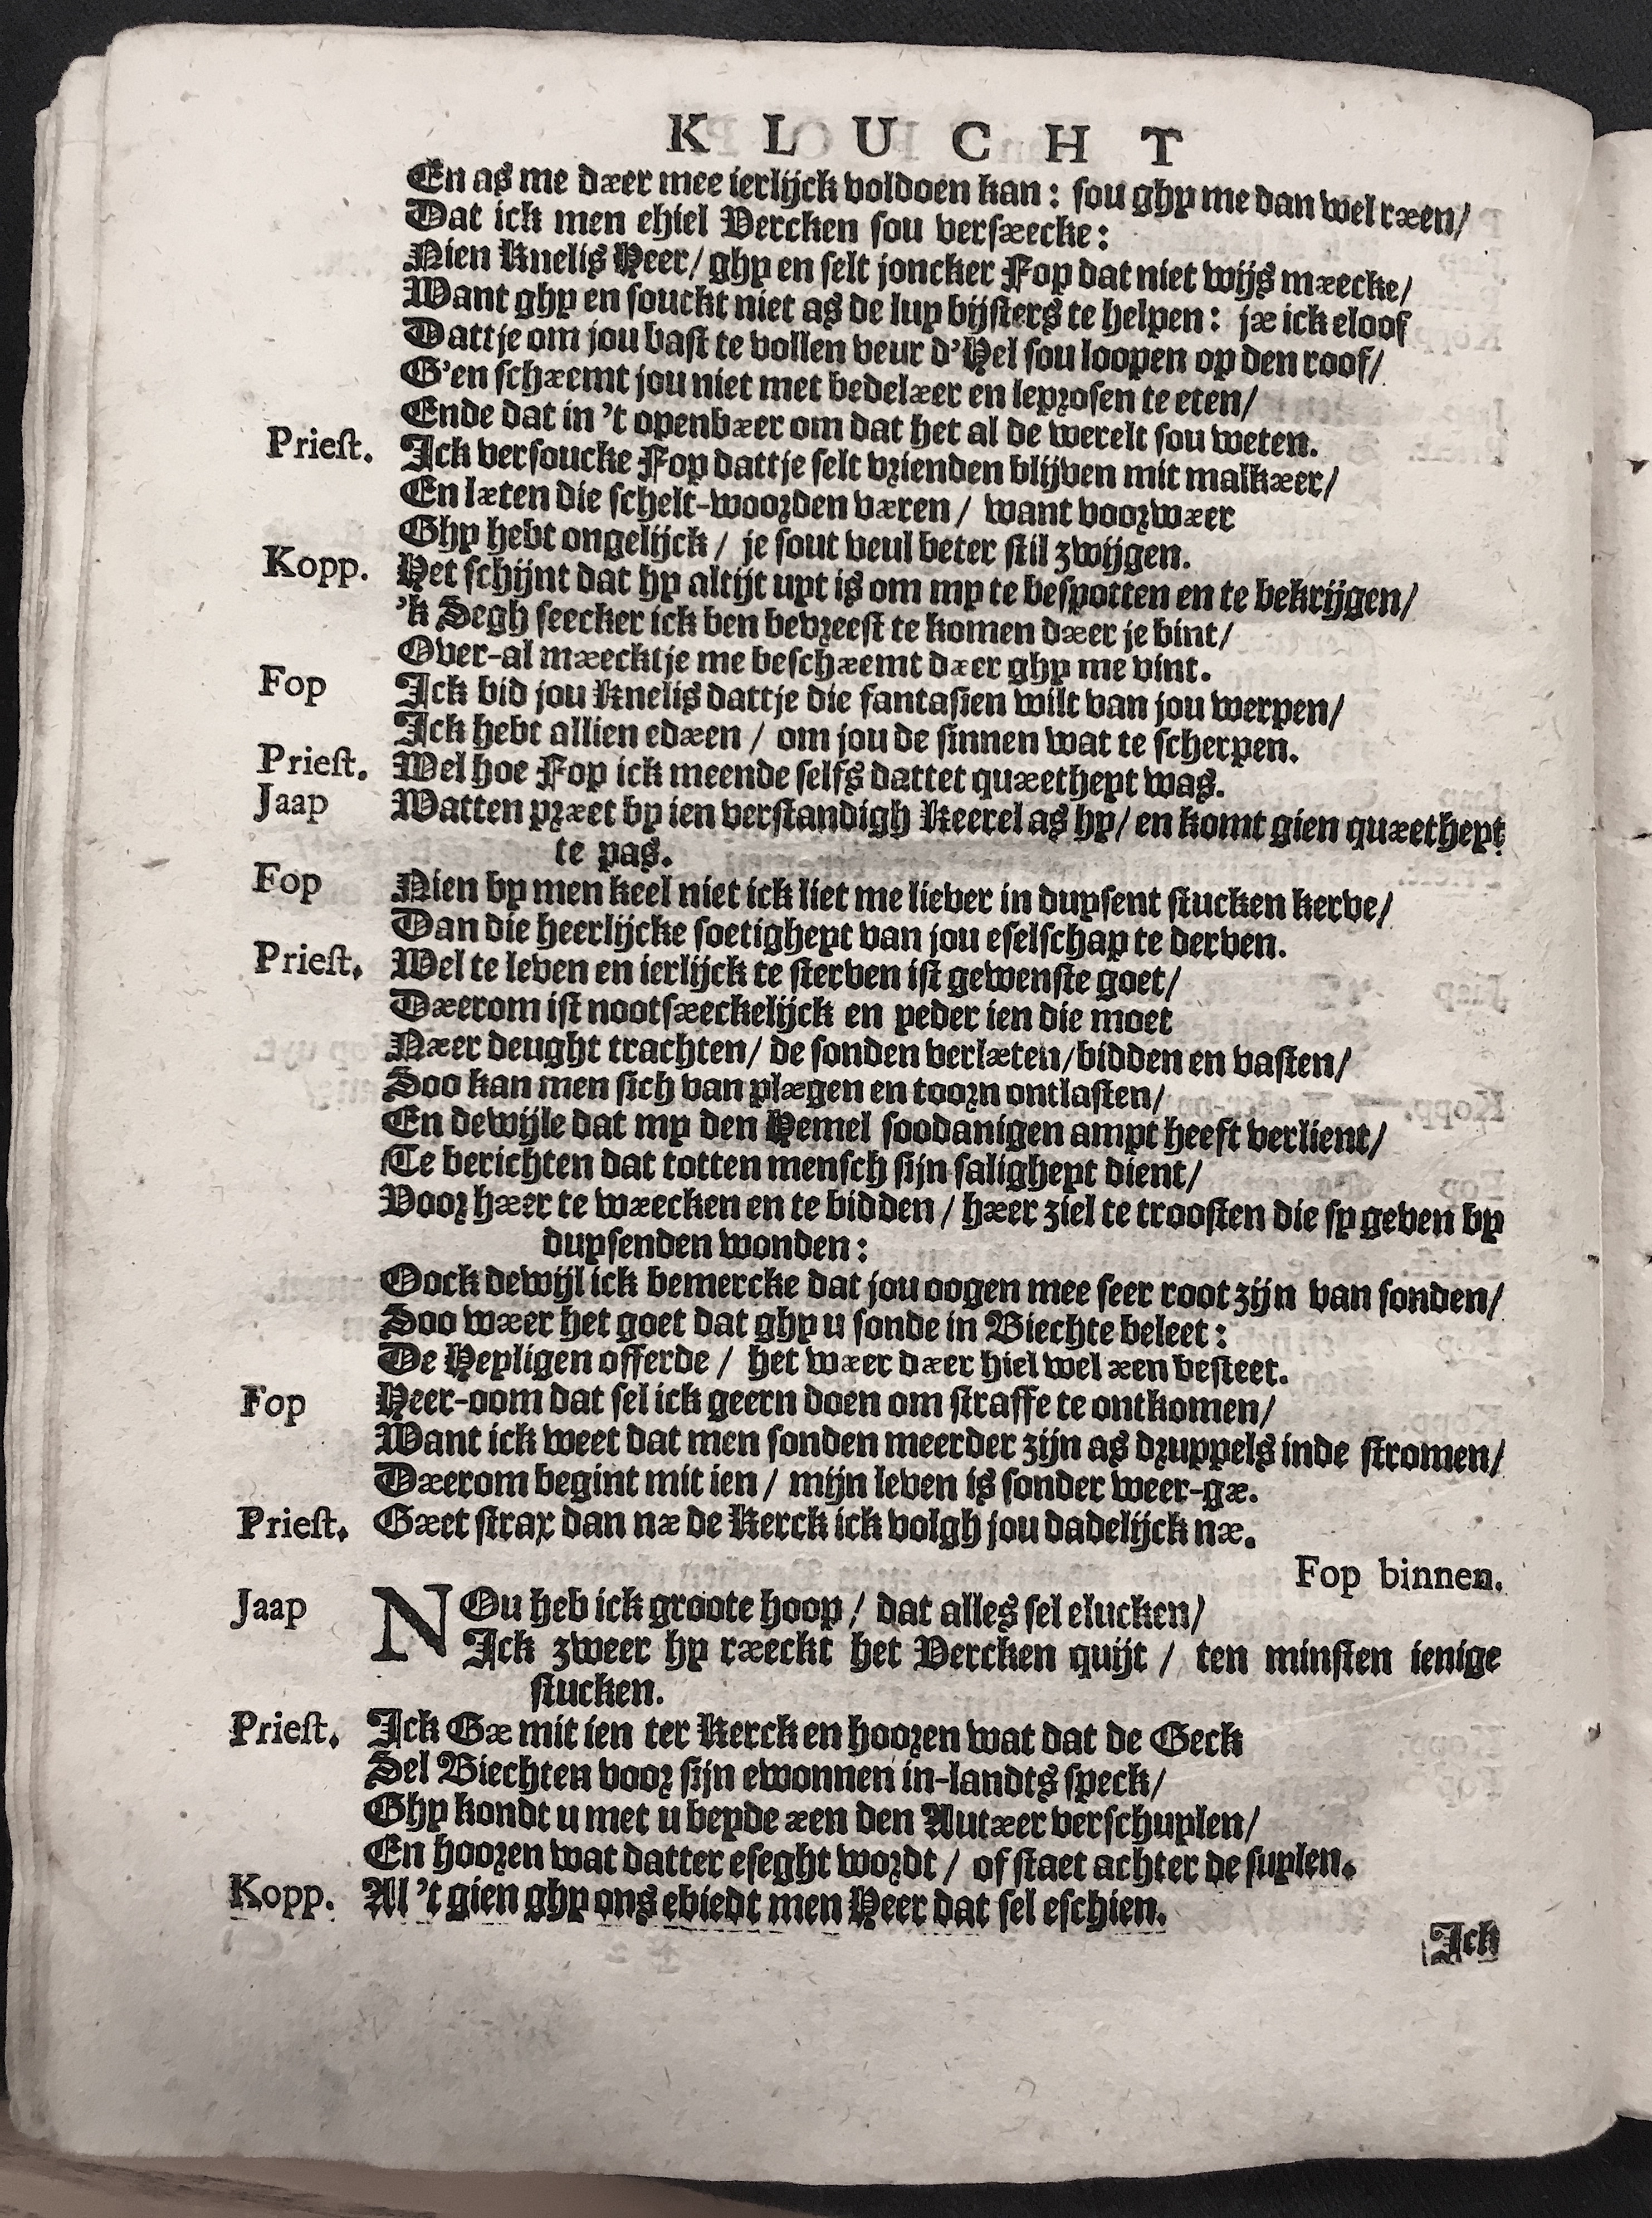 KLUCHT
En as me dær mee ierlijck voldoen kan: sou ghy me dan wel ræen/
Dat ick men ehiel Vercken sou versæecke:
Nien Knelis Heer/ ghy en selt joncker Fop dat niet wijs mæecke/
Want ghy en souckt niet as de luy bijsters te helpen: jæ ick eloof
Dattje om jou vast te vollen veur d'Hel sou loopen op den roof/
G'en schæemt jou niet met bedelæer en leprosen te eten/
Ende dat in 't openbæer om dat het al de werelt sou weten.
Priest. Ick versoucke Fop dattje selt vrienden blijven mit malkæer/
En læten die schelt-woorden væren / want voorwæer
Ghy hebt ongelijck / je sout veul beter stil zwijgen.
Kopp. Het schijnt dat hy altijt uyt is om my te bespotten en te bekrijgen/
'k Segh seecker ick ben bevreest te komen dæer je bint/
Over-al mæecktje me beschæemt dæer ghy me vint.
Fop Ick bid jou Knelis dattje die fantasien wilt van jou werpen/
Ick hebt allien edæen / om jou de sinnen wat te scherpen.
Priest. Wel hoe Fop ick meende selfs dattet quæetheyt was.
Jaap Watten præet by ien verstandigh Keerel as hy/ en komt gien quæetheyt
te pas.
Fop Nien by men keel niet ick liet me liever in duysent stucken kerve/
Dan die heerlijcke soetigheyt van jou eselschap te derven.
Priest. Wel te leven en ierlijck te sterven ist gewenste goet/
Dæerom ist nootsæeckelijck en yeder ien die moet
Næer deught trachten/ de sonden verlæten/ bidden en vasten/
Soo kan men sich van plægen en toorn ontlasten/
En dewijle dat my den Hemel soodanigen ampt heeft verlient/
Te berichten dat totten mensch sijn saligheyt dient/
Voor hæer te wæecken en te bidden / hæer ziel te troosten die sy geven by
duysenden wonden:
Oock dewijl ick bemercke dat jou oogen mee seer root zijn van sonden/
Soo wæer het goet dat ghy u sonde in Biechte beleet:
De Heyligen offerde / het wæer dæer hiel wel æen besteet.
Fop Heer-oom dat sel ick geern doen om straffe te ontkomen/
Want ick weet dat men sonden meerder zijn as druppels inde stromen/
Dæerom begint mit ien / mijn leven is sonder weer-gæ.
Priest. Gæet strax dan næ de Kerck ick volgh jou dadelijck næ.
Fop binnen.
Jaap NOu heb ick groote hoop / dat alles sel elucken/
Ick zweer hy ræeckt het Vercken quijt / ten minsten ienige
stucken.
Priest. Ick Gæ mit ien ter Kerck en hooren wat dat de Geck
Sel Biechten voor sijn ewonnen in-landts speck/
Ghy kondt u met u beyde æen den Autæer verschuylen/
En hooren wat datter eseght wordt / of staet achter de suylen.
Kopp. Al 't gien ghy ons ebiedt men Heer dat sel eschien.
Ick